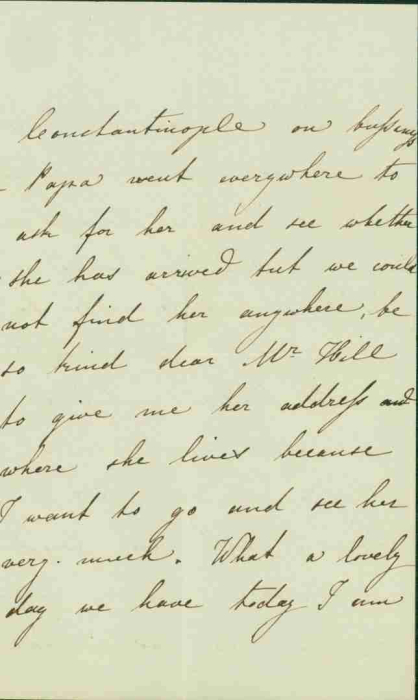 Constantinople on bussiness
- Papa went everywhere to
ask for her and see whether
she has arrived but we could
not find her anywhere, be
so kind dear Mr Hill
to give me her address and
where she lives because
I want to go and see her
very. much. What a lovely
day we have today I am